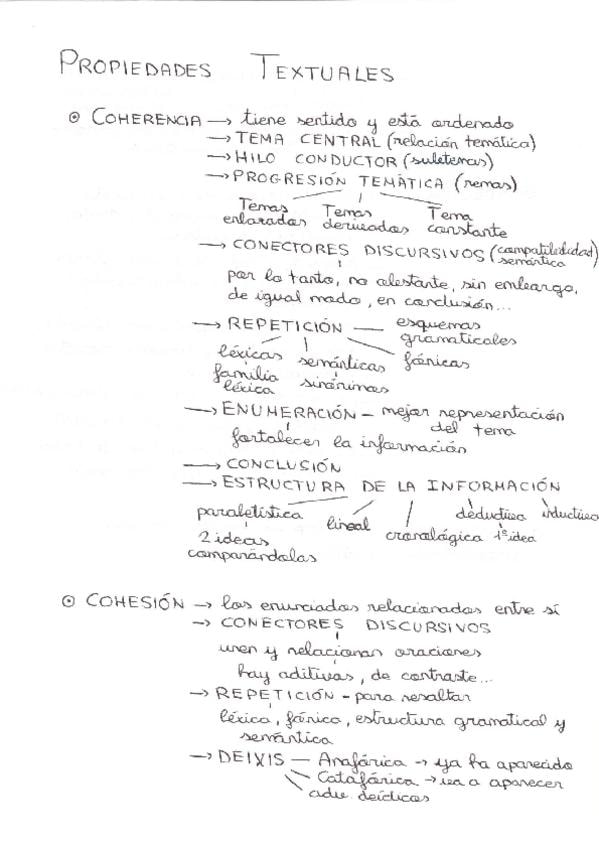 PROPIEDADES TEXTUALES
⊙ COHERENCIA → tiene sentido y está ordenado
→ TEMA CENTRAL (relación temática)
→ HILO CONDUCTOR (subtemas)
→ PROGRESIÓN TEMÁTICA (remas)
Temas enlazados Temas derivados Tema constante
→ CONECTORES DISCURSIVOS (compatibilidad semántica)
por lo tanto, no obstante, sin embargo,
de igual modo, en conclusión...
→ REPETICIÓN — esquemas gramaticales
léxicas semánticas fónicas
familia léxica sinónimos
→ ENUMERACIÓN – mejor representación del tema
fortalecer la información
→ CONCLUSIÓN
→ ESTRUCTURA DE LA INFORMACIÓN
paralelística lineal cronológica deductiva inductiva
2 ideas comparándolas 1ª idea
⊙ COHESIÓN → los enunciados relacionados entre sí
→ CONECTORES DISCURSIVOS
unen y relacionan oraciones
hay aditivos, de contraste...
→ REPETICIÓN – para resaltar
léxica, fónica, estructura gramatical y
semántica
→ DEIXIS — Anafórica → ya ha aparecido
Catafórica → va a aparecer
deícticos